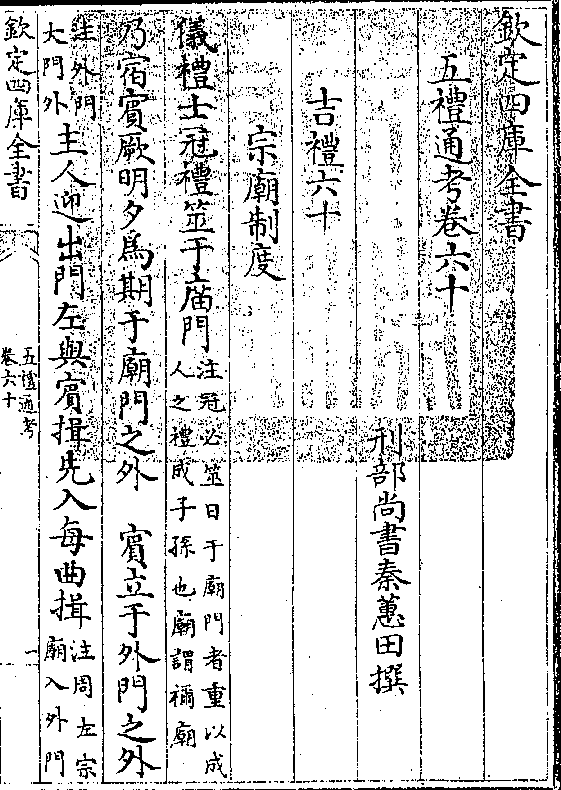 欽定四庫全書
五禮通考卷六十
刑部尚書秦蕙田撰
吉禮六十
宗廟制度
儀禮士冠禮筮于廟門注冠必筮日于廟門者重以成人之禮成子孫也廟謂禰廟
乃宿賓厥明夕為期于廟門之外 賓立于外門之外
注外門大門外主人迎出門左與賓揖先入每曲揖注周左宗廟入外門
欽定四庫全書
五禮通考
卷六十
一